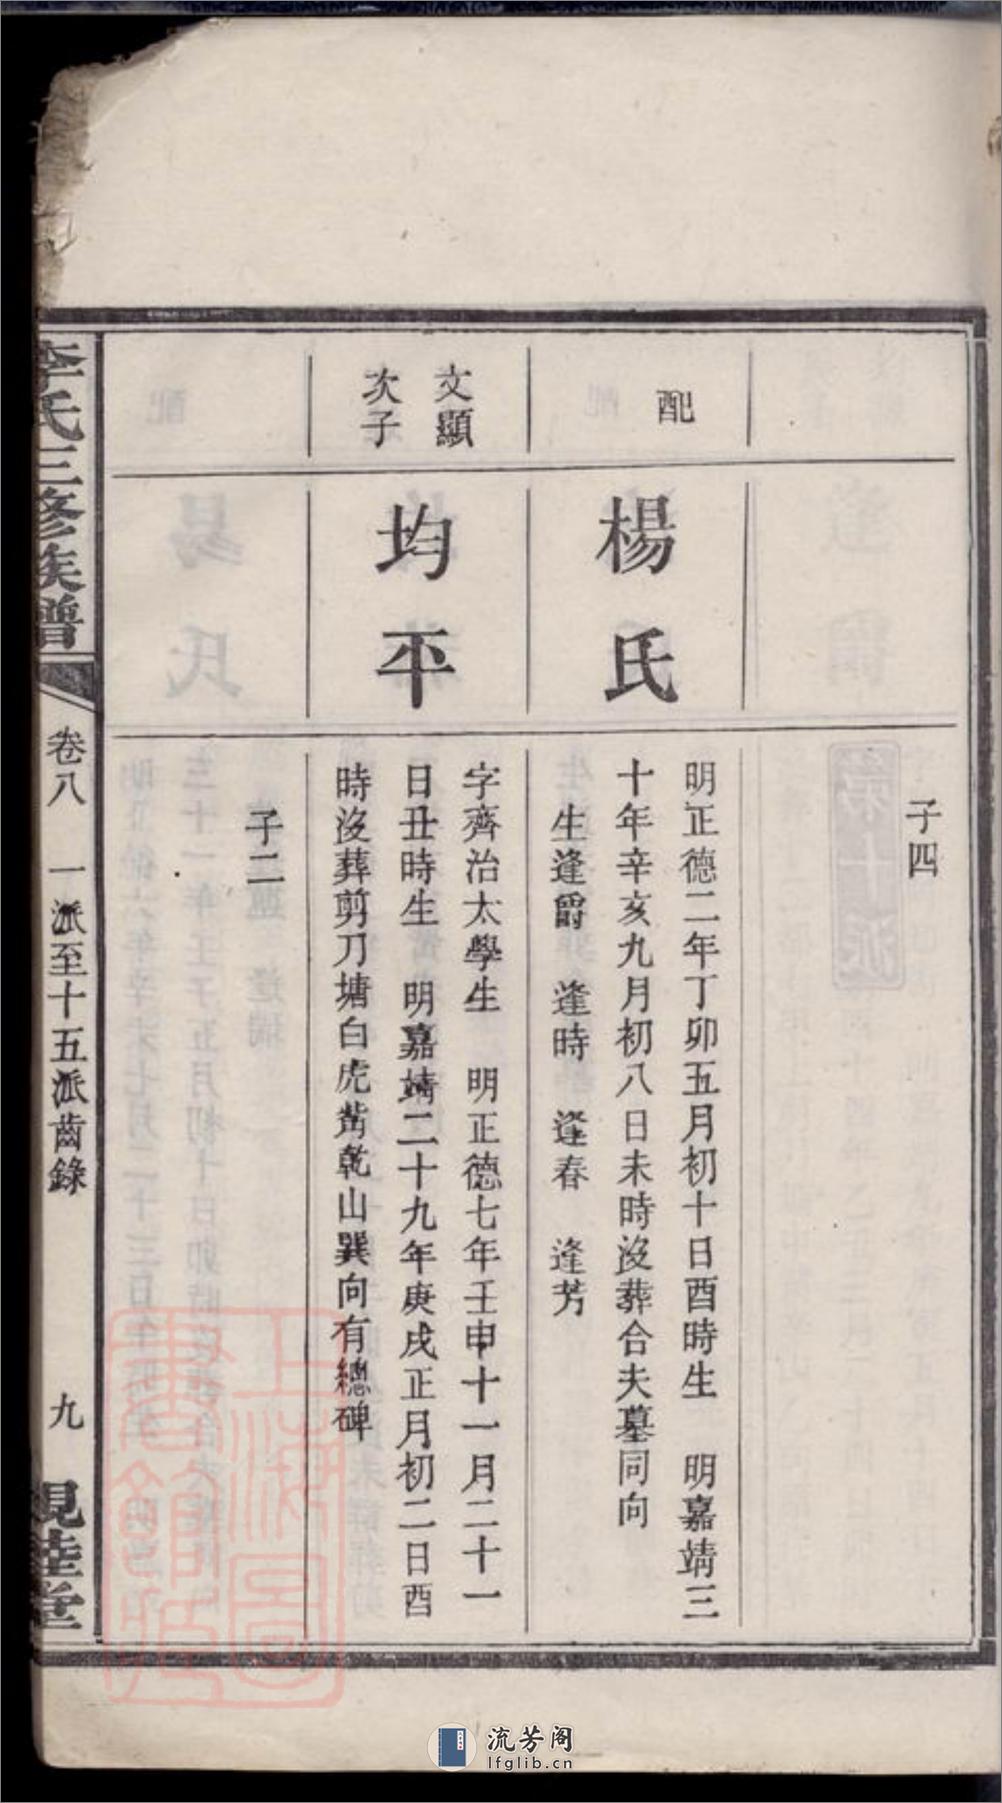 子四
配
楊氏
明正德二年丁卯五月初十日酉時生　明嘉靖三
十年辛亥九月初八日未時沒葬合夫墓同向
生逢爵　逢時　逢春　逢芳
文顯
次子
均平
字齊治太學生　明正德七年壬申十一月二十一
日丑時生　明嘉靖二十九年庚戌正月初二日酉
時沒葬剪刀塘白虎嘴乾山巽向有總碑
子二
李氏三修族譜
卷八　一派至十五派齒錄
九
上海圖書館藏
流芳阁
lfglib.cn